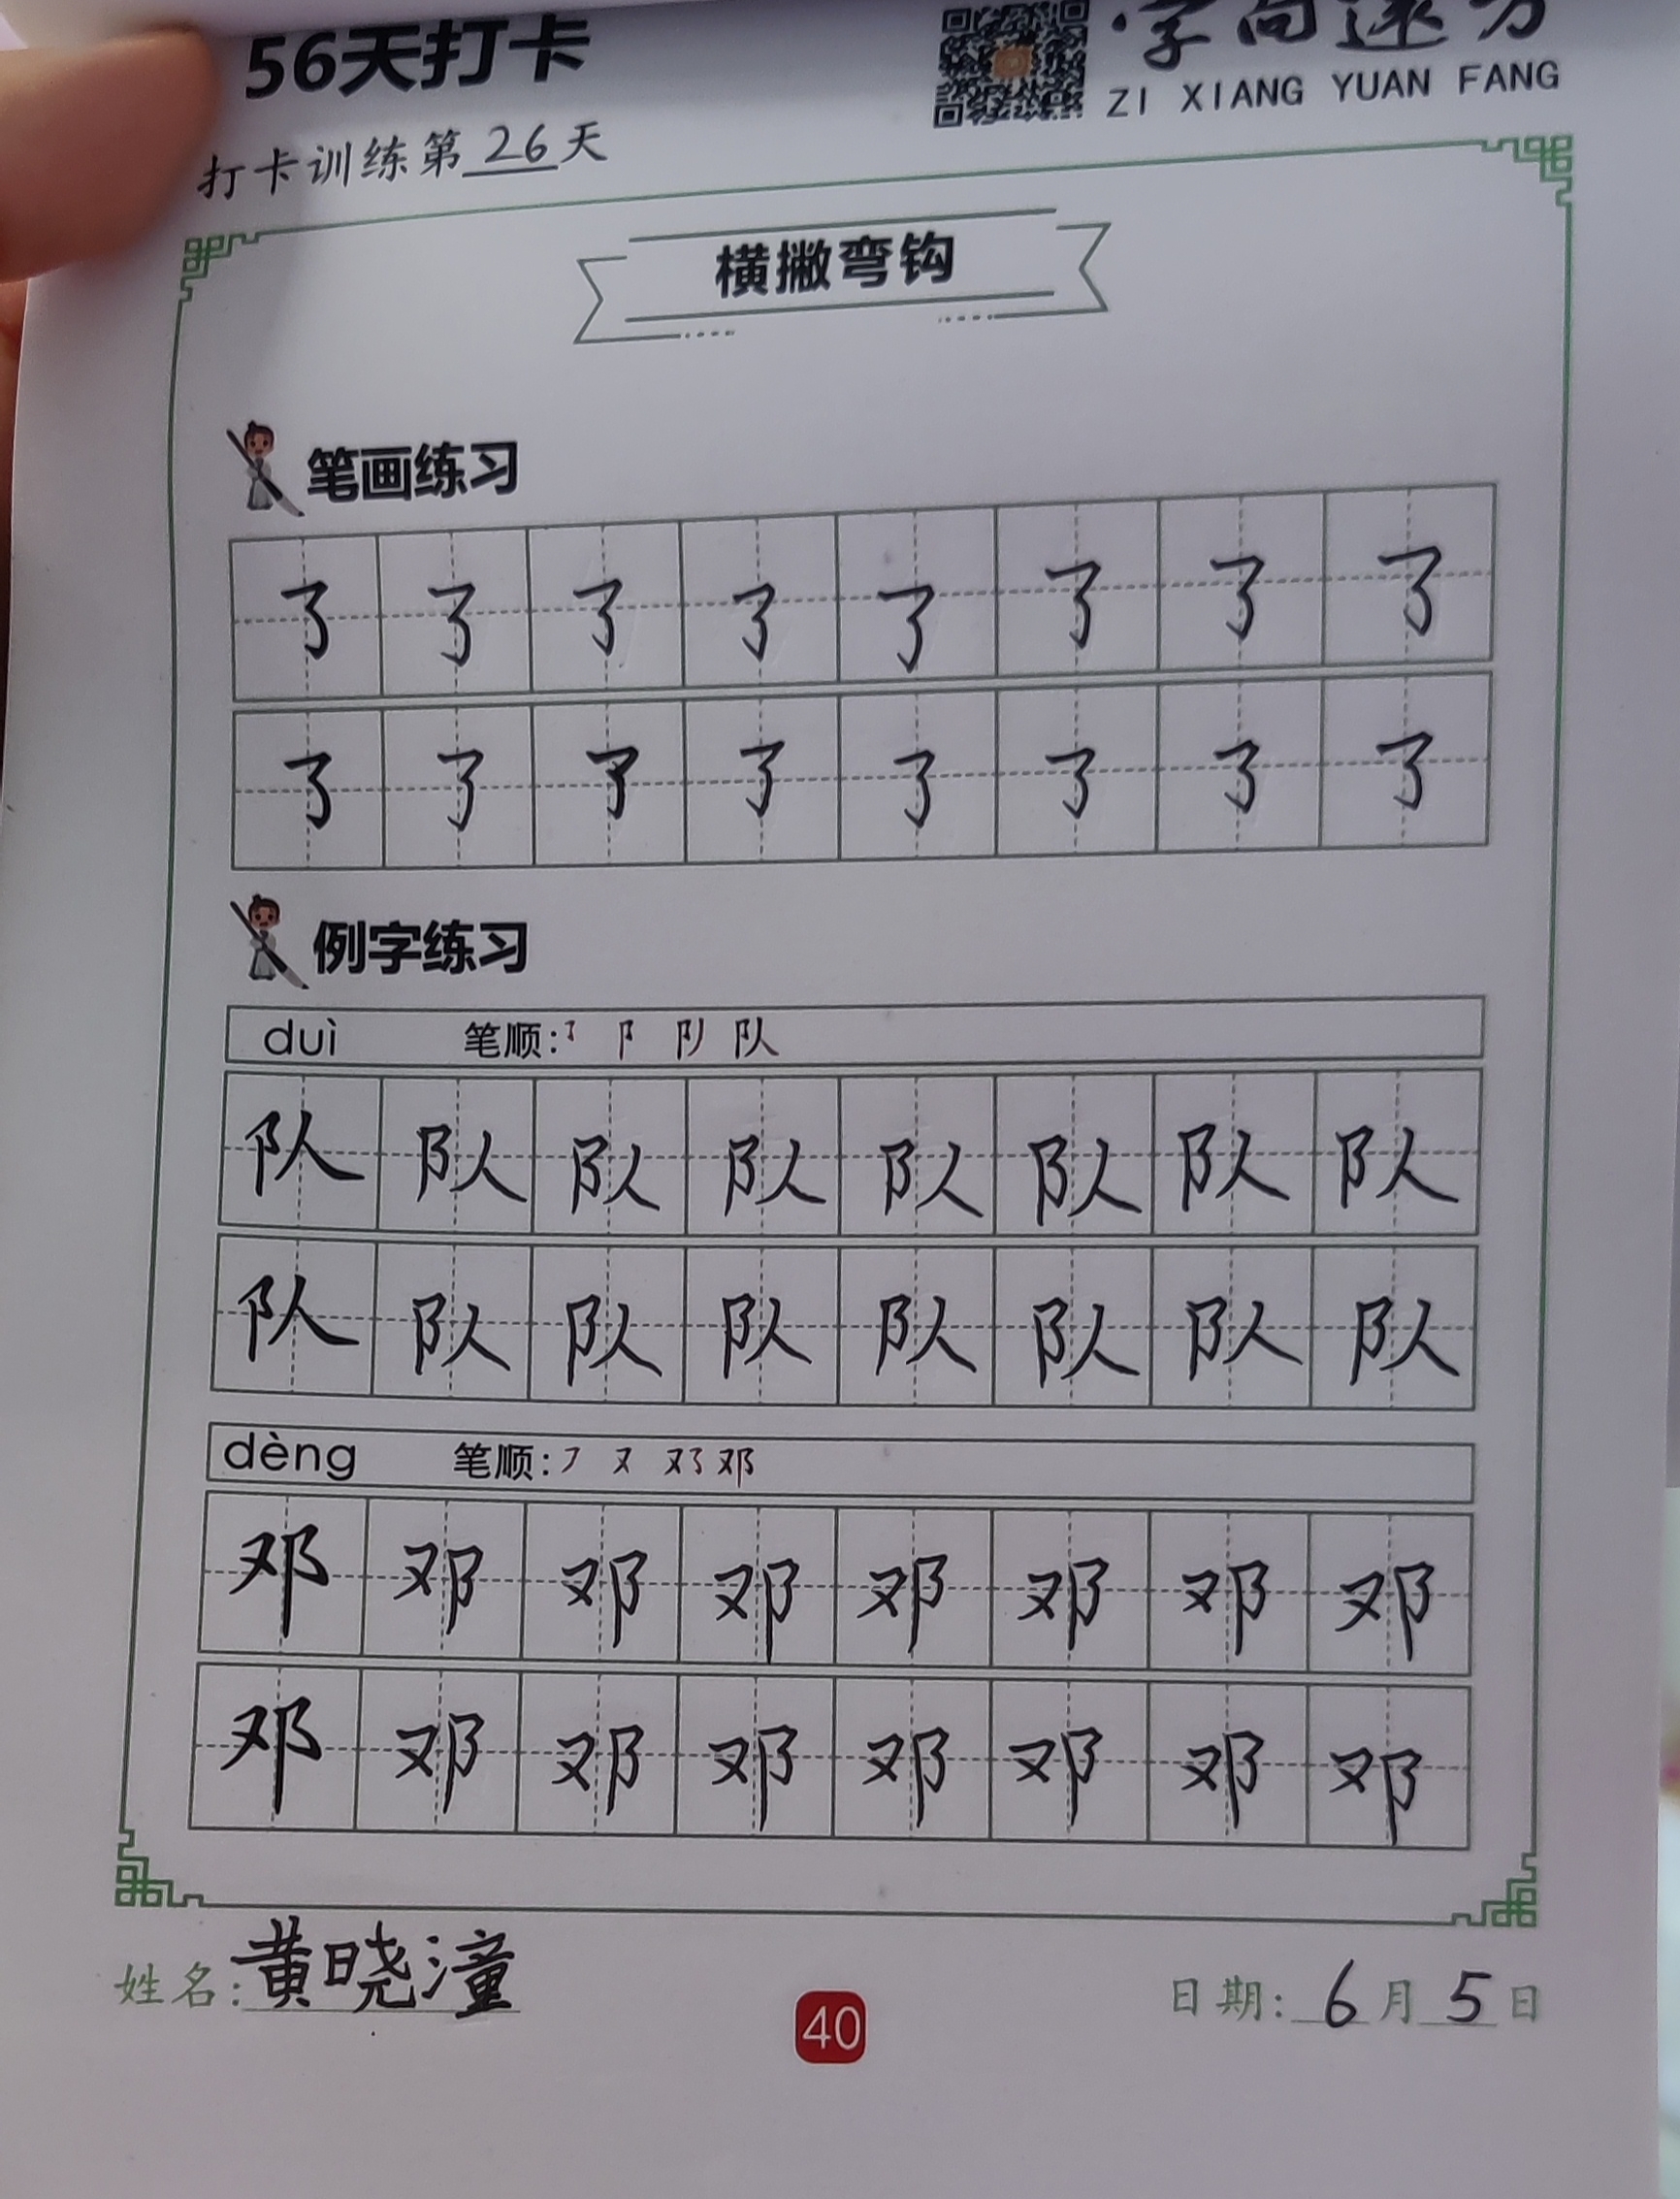 56天打卡
·字向远方
ZI XIANG YUAN FANG
打卡训练第 26 天
横撇弯钩
笔画练习
㇌ ㇌ ㇌ ㇌ ㇌ ㇌ ㇌ ㇌
㇌ ㇌ ㇌ ㇌ ㇌ ㇌ ㇌ ㇌
例字练习
duì 笔顺:㇌ 阝 队
队 队 队 队 队 队 队 队
队 队 队 队 队 队 队 队
dèng 笔顺:㇇ 又 邓
邓 邓 邓 邓 邓 邓 邓 邓
邓 邓 邓 邓 邓 邓 邓 邓
姓名:黄晓潼
40
日期: 6 月 5 日